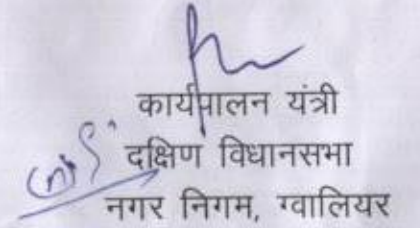 कार्यपालन यंत्री
दक्षिण विधानसभा
नगर निगम, ग्वालियर